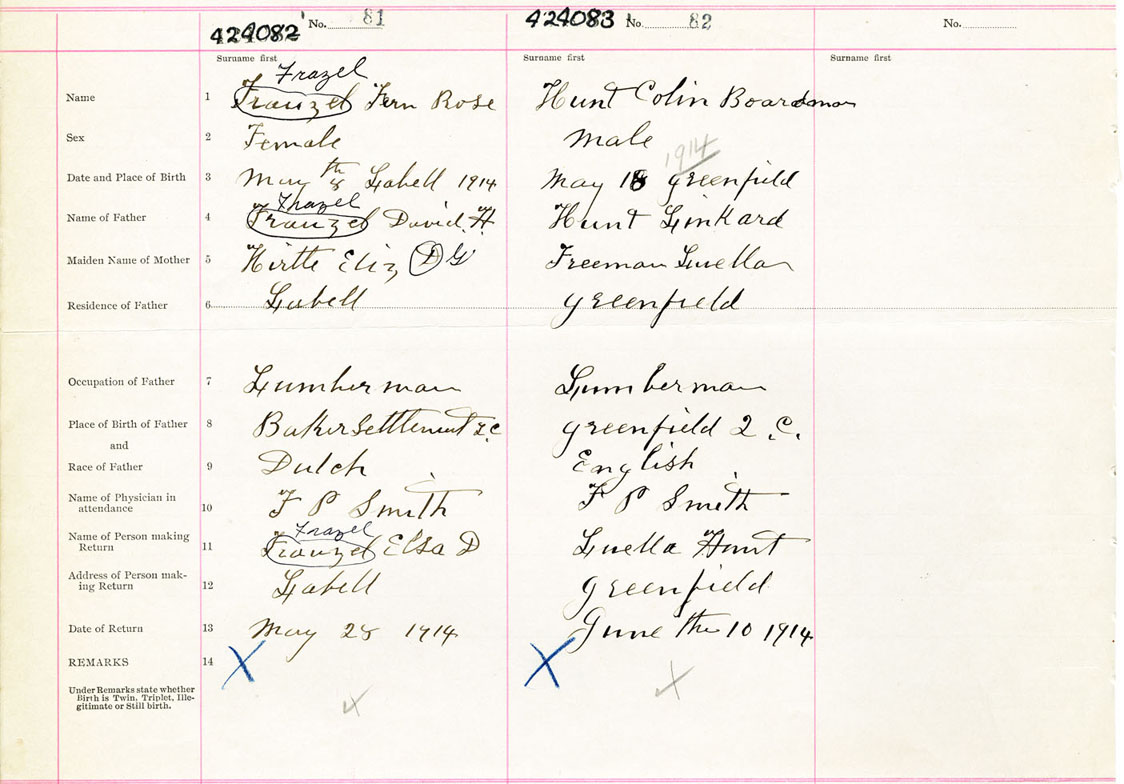 424082 No. 81 424083 No. 82 No.
Surname first Surname first Surname first
Frazel
Name 1 Franzel Fern Rose Hunt Colin Boardman
Sex 2 Female male
1914
Date and Place of Birth 3 May 8th Labell 1914 May 18 Greenfield
Frazel
Name of Father 4 Franzel David H Hunt Linkard
Maiden Name of Mother 5 Hirtle Eliz D G Freeman Luella
Residence of Father 6 Labell Greenfield
Occupation of Father 7 Lumberman Lumberman
Place of Birth of Father 8 Baker Settlement L.C Greenfield Q.C.
and
Race of Father 9 Dutch English
Name of Physician in
attendance 10 F P Smith F P Smith
Frazel
Name of Person making
Return 11 Franzel Elsa D Luella Hunt
Address of Person mak-
ing Return 12 Labell Greenfield
Date of Return 13 May 28 1914 June the 10 1914
REMARKS 14 X X
Under Remarks state whether
Birth is Twin, Triplet, Ille-
gitimate or Still birth.